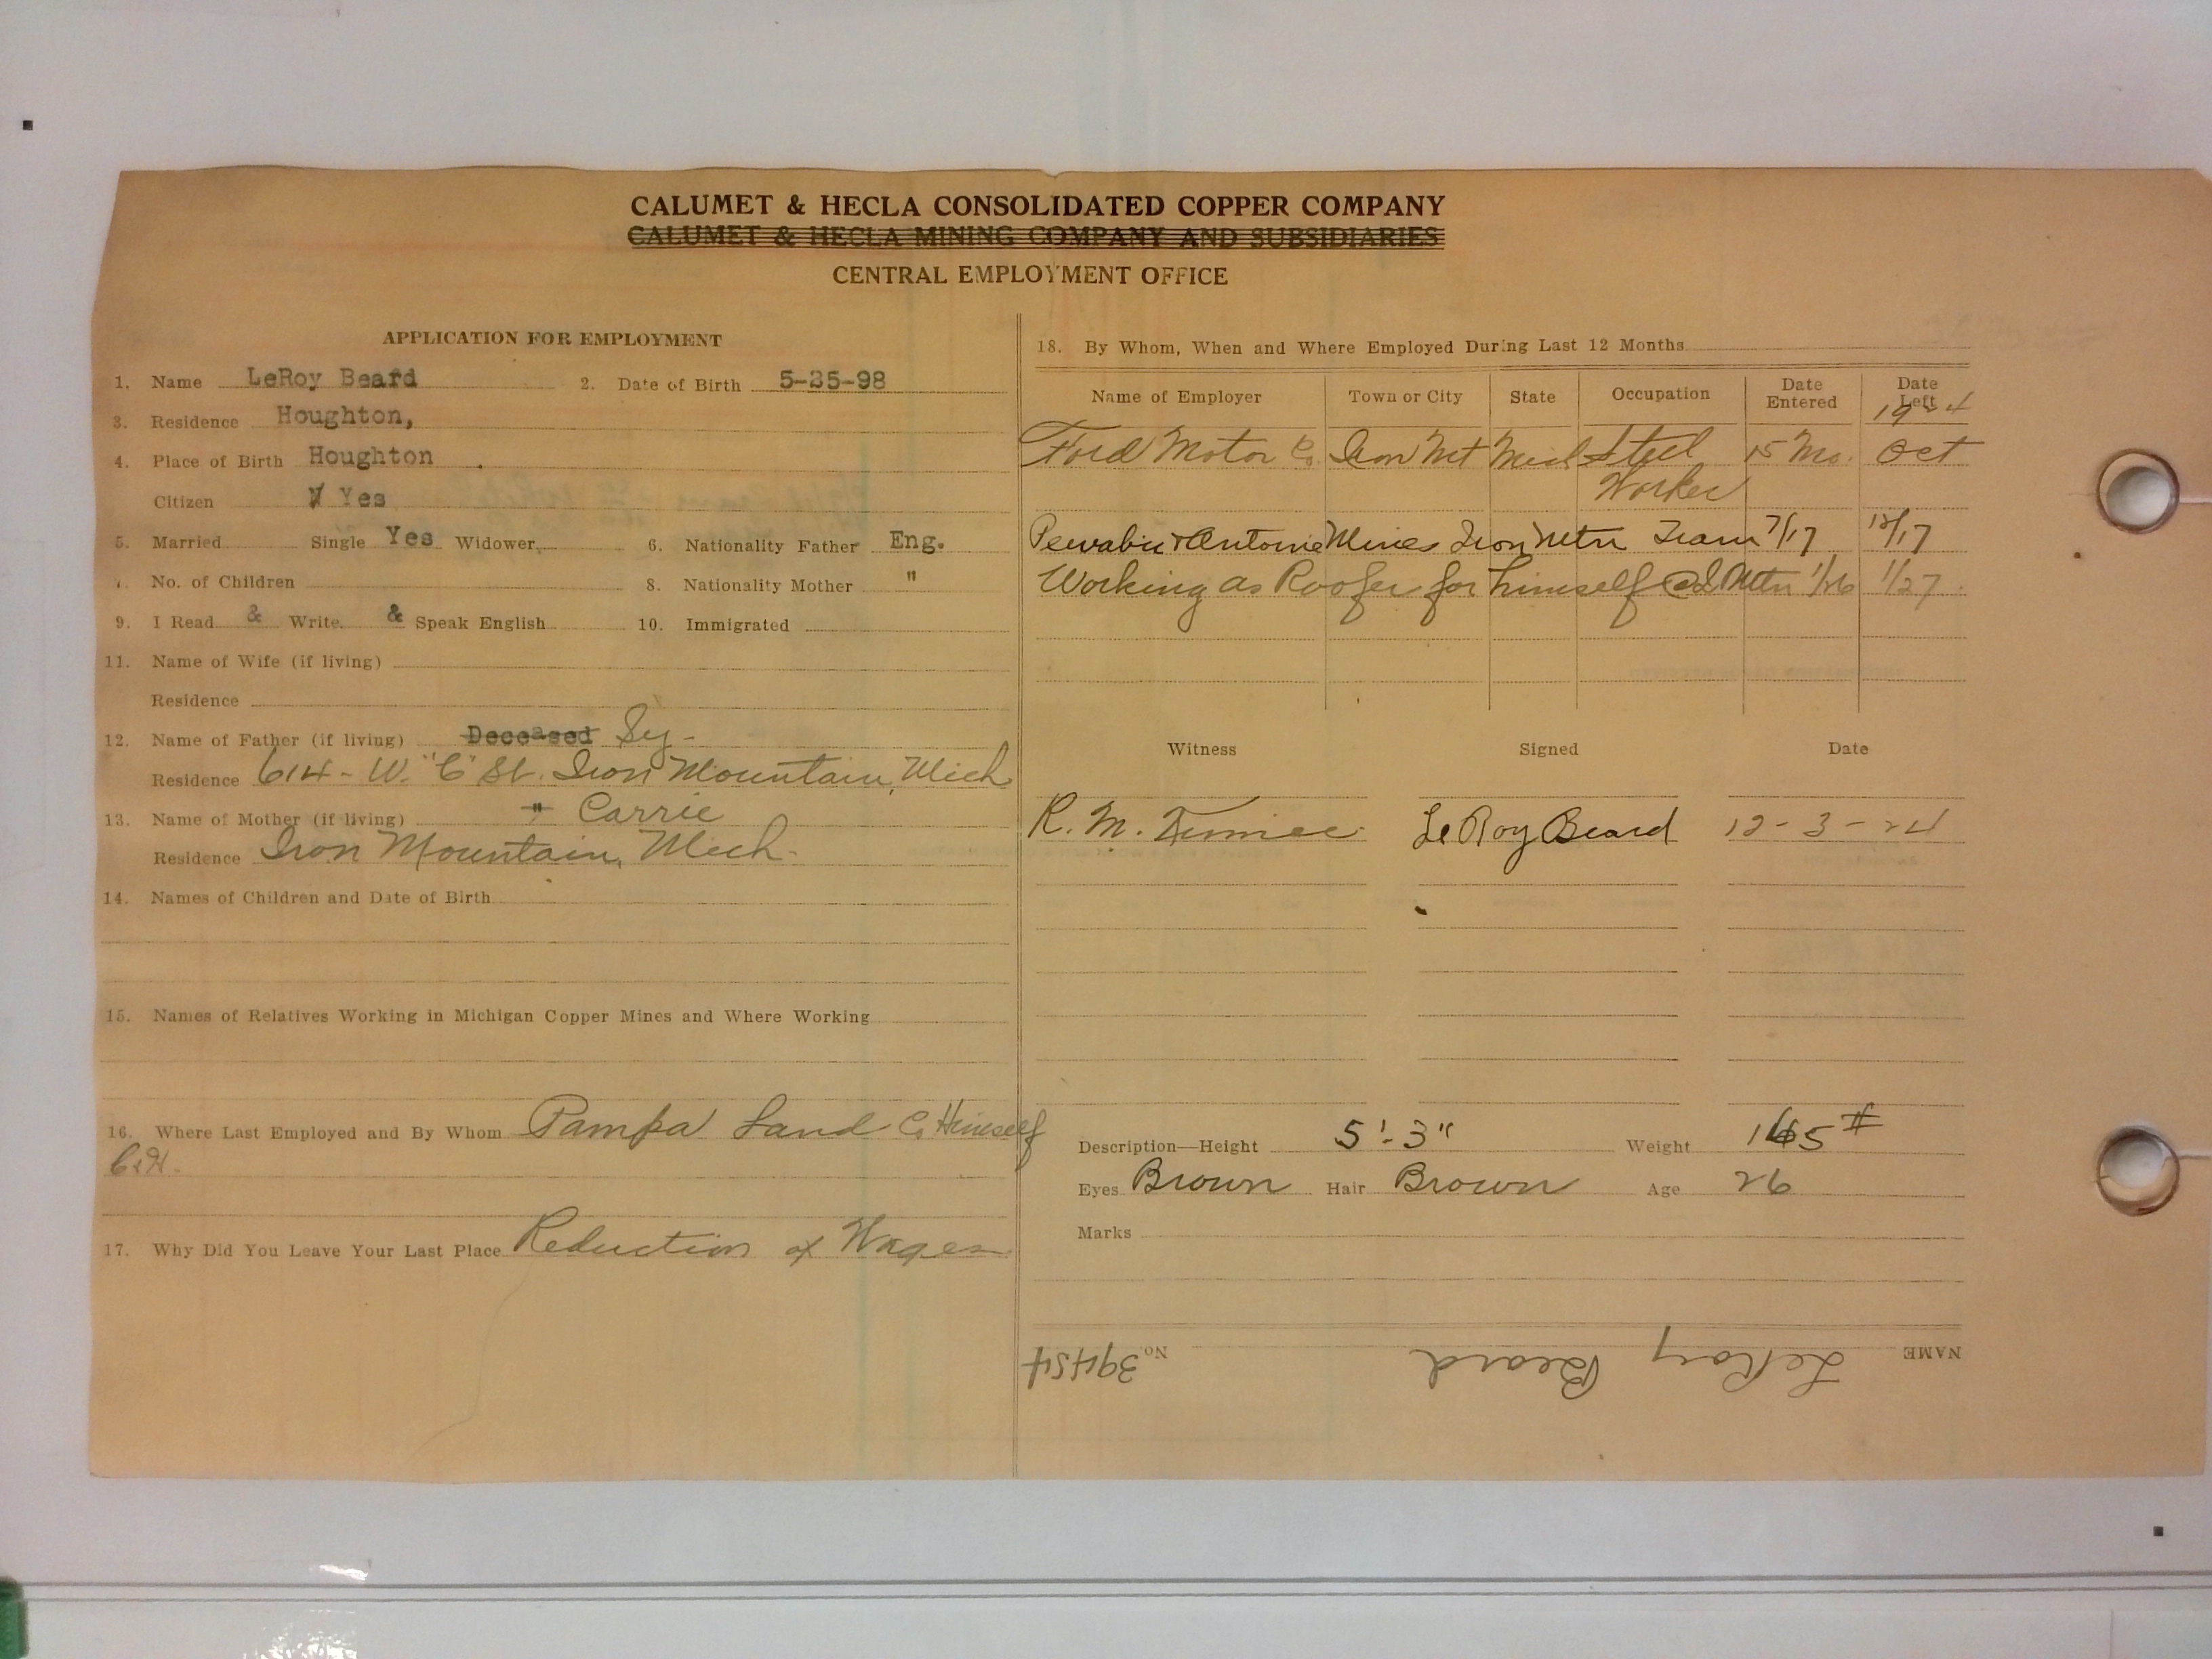 CALUMET & HECLA CONSOLIDATED COPPER COMPANY
CALUMET & HECLA MINING COMPANY AND SUBSIDIARIES
CENTRAL EMPLOYMENT OFFICE
APPLICATION FOR EMPLOYMENT
1. Name LeRoy Beard 2. Date of Birth 5-25-98
3. Residence Houghton,
4. Place of Birth Houghton
Citizen Yes
5. Married Single Yes Widower 6. Nationality Father Eng.
7. No. of Children 8. Nationality Mother "
9. I Read & Write & Speak English 10. Immigrated
11. Name of Wife (if living)
Residence
12. Name of Father (if living) Deceased Sy-
Residence 614 - W. "C" St. Iron Mountain, Mich
13. Name of Mother (if living) " Carrie
Residence Iron Mountain, Mich.
14. Names of Children and Date of Birth
15. Names of Relatives Working in Michigan Copper Mines and Where Working
16. Where Last Employed and By Whom Pampa Land Co Himself
17. Why Did You Leave Your Last Place Reduction of Wages
18. By Whom, When and Where Employed During Last 12 Months
Name of Employer Town or City State Occupation Date Entered Date Left
1924
Ford Motor Co. Iron Mt Mich Steel 15 Mo. Oct
Worker
Pewabic & Antoine Mines Iron Mtn Team 7/17 12/17
Working as Roofer for himself @ I Mtn 1/26 1/27
Witness Signed Date
R. M. LeRoy Beard 12-3-24
Description—Height 5'-3" Weight 165#
Eyes Brown Hair Brown Age 26
Marks
NAME LeRoy Beard No. 39454